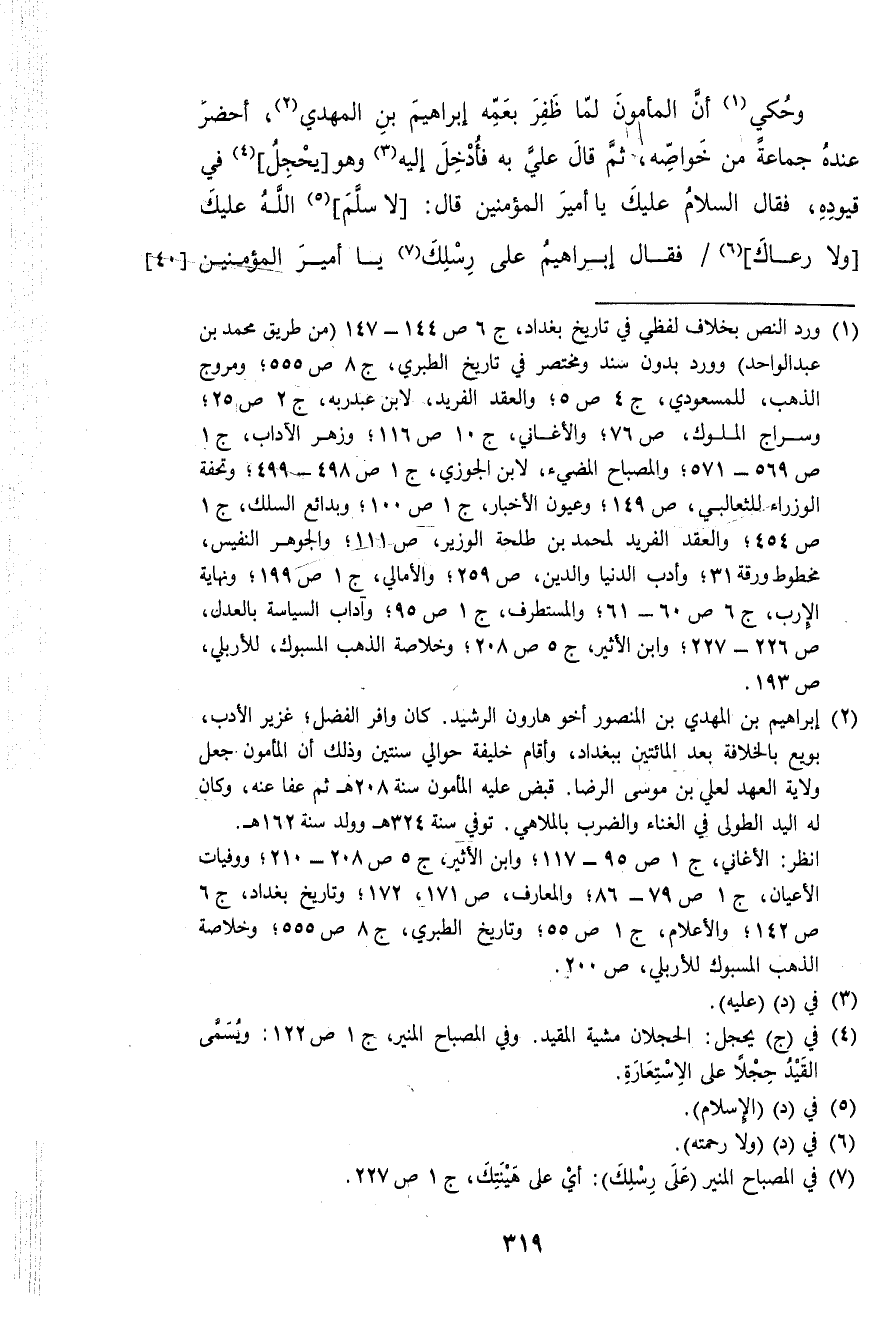 وحُكي(١) أنَّ المأمونَ لمّا ظَفِرَ بعَمِّه إبراهيمَ بنِ المهدي(٢)، أحضرَ
عندهُ جماعةً من خَواصِّه، ثمَّ قالَ عليَّ به فأُدْخِلَ إليه(٣) وهو [يحْجِلُ](٤) في
قيودِهِ، فقال السلامُ عليكَ يا أميرَ المؤمنين قال: [لا سلَّمَ](٥) اللَّهُ عليكَ
[ولا رعـاكَ](٦) / فقـال إبـراهيمُ على رِسْلِكَ(٧) يـا أميـرَ المؤمنيـن [٤٠]
(١) ورد النص بخلاف لفظي في تاريخ بغداد، ج ٦ ص ١٤٤ – ١٤٧ (من طريق محمد بن
عبدالواحد) وورد بدون سند ومختصر في تاريخ الطبري، ج ٨ ص ٥٥٥؛ ومروج
الذهب، للمسعودي، ج ٤ ص ٥؛ والعقد الفريد، لابن عبدربه، ج ٢ ص ٢٥؛
وسـراج الملـوك، ص ٧٦؛ والأغـاني، ج ١٠ ص ١١٦؛ وزهـر الآداب، ج ١
ص ٥٦٩ – ٥٧١؛ والمصباح المضيء، لابن الجوزي، ج ١ ص ٤٩٨ – ٤٩٩؛ وتحفة
الوزراء للثعالبـي، ص ١٤٩؛ وعيون الأخبار، ج ١ ص ١٠٠؛ وبدائع السلك، ج ١
ص ٤٥٤؛ والعقد الفريد لمحمد بن طلحة الوزير، ص ١١١؛ والجوهـر النفيس،
مخطوط ورقة ٣١؛ وأدب الدنيا والدين، ص ٢٥٩؛ والأمالي، ج ١ ص ١٩٩؛ ونهاية
الإرب، ج ٦ ص ٦٠ – ٦١؛ والمستطرف، ج ١ ص ٩٥؛ وآداب السياسة بالعدل،
ص ٢٢٦ – ٢٢٧؛ وابن الأثير، ج ٥ ص ٢٠٨؛ وخلاصة الذهب المسبوك، للأربلي،
ص ١٩٣.
(٢) إبراهيم بن المهدي بن المنصور أخو هارون الرشيد. كان وافر الفضل؛ غزير الأدب،
بويع بالخلافة بعد المائتين ببغداد، وأقام خليفة حوالي سنتين وذلك أن المأمون جعل
ولاية العهد لعلي بن موسى الرضا. قبض عليه المأمون سنة ٢٠٨هـ ثم عفا عنه، وكان
له اليد الطولى في الغناء والضرب بالملاهي. توفي سنة ٣٢٤هـ وولد سنة ١٦٢هـ.
انظر: الأغاني، ج ١ ص ٩٥ – ١١٧؛ وابن الأثير، ج ٥ ص ٢٠٨ – ٢١٠؛ ووفيات
الأعيان، ج ١ ص ٧٩ – ٨٦؛ والمعارف، ص ١٧١، ١٧٢؛ وتاريخ بغداد، ج ٦
ص ١٤٢؛ والأعلام، ج ١ ص ٥٥؛ وتاريخ الطبري، ج ٨ ص ٥٥٥؛ وخلاصة
الذهب المسبوك للأربلي، ص ٢٠٠.
(٣) في (د) (عليه).
(٤) في (ج) يحجل: الحجلان مشية المقيد. وفي المصباح المنير، ج ١ ص ١٢٢: ويُسَمَّى
القَيْدُ حِجْلًا على الاِسْتِعَارَةِ.
(٥) في (د) (الإسلام).
(٦) في (د) (ولا رحمته).
(٧) في المصباح المنير (عَلَى رِسْلِكَ): أيْ على هَيْنَتِكَ، ج ١ ص ٢٢٧.
٣١٩